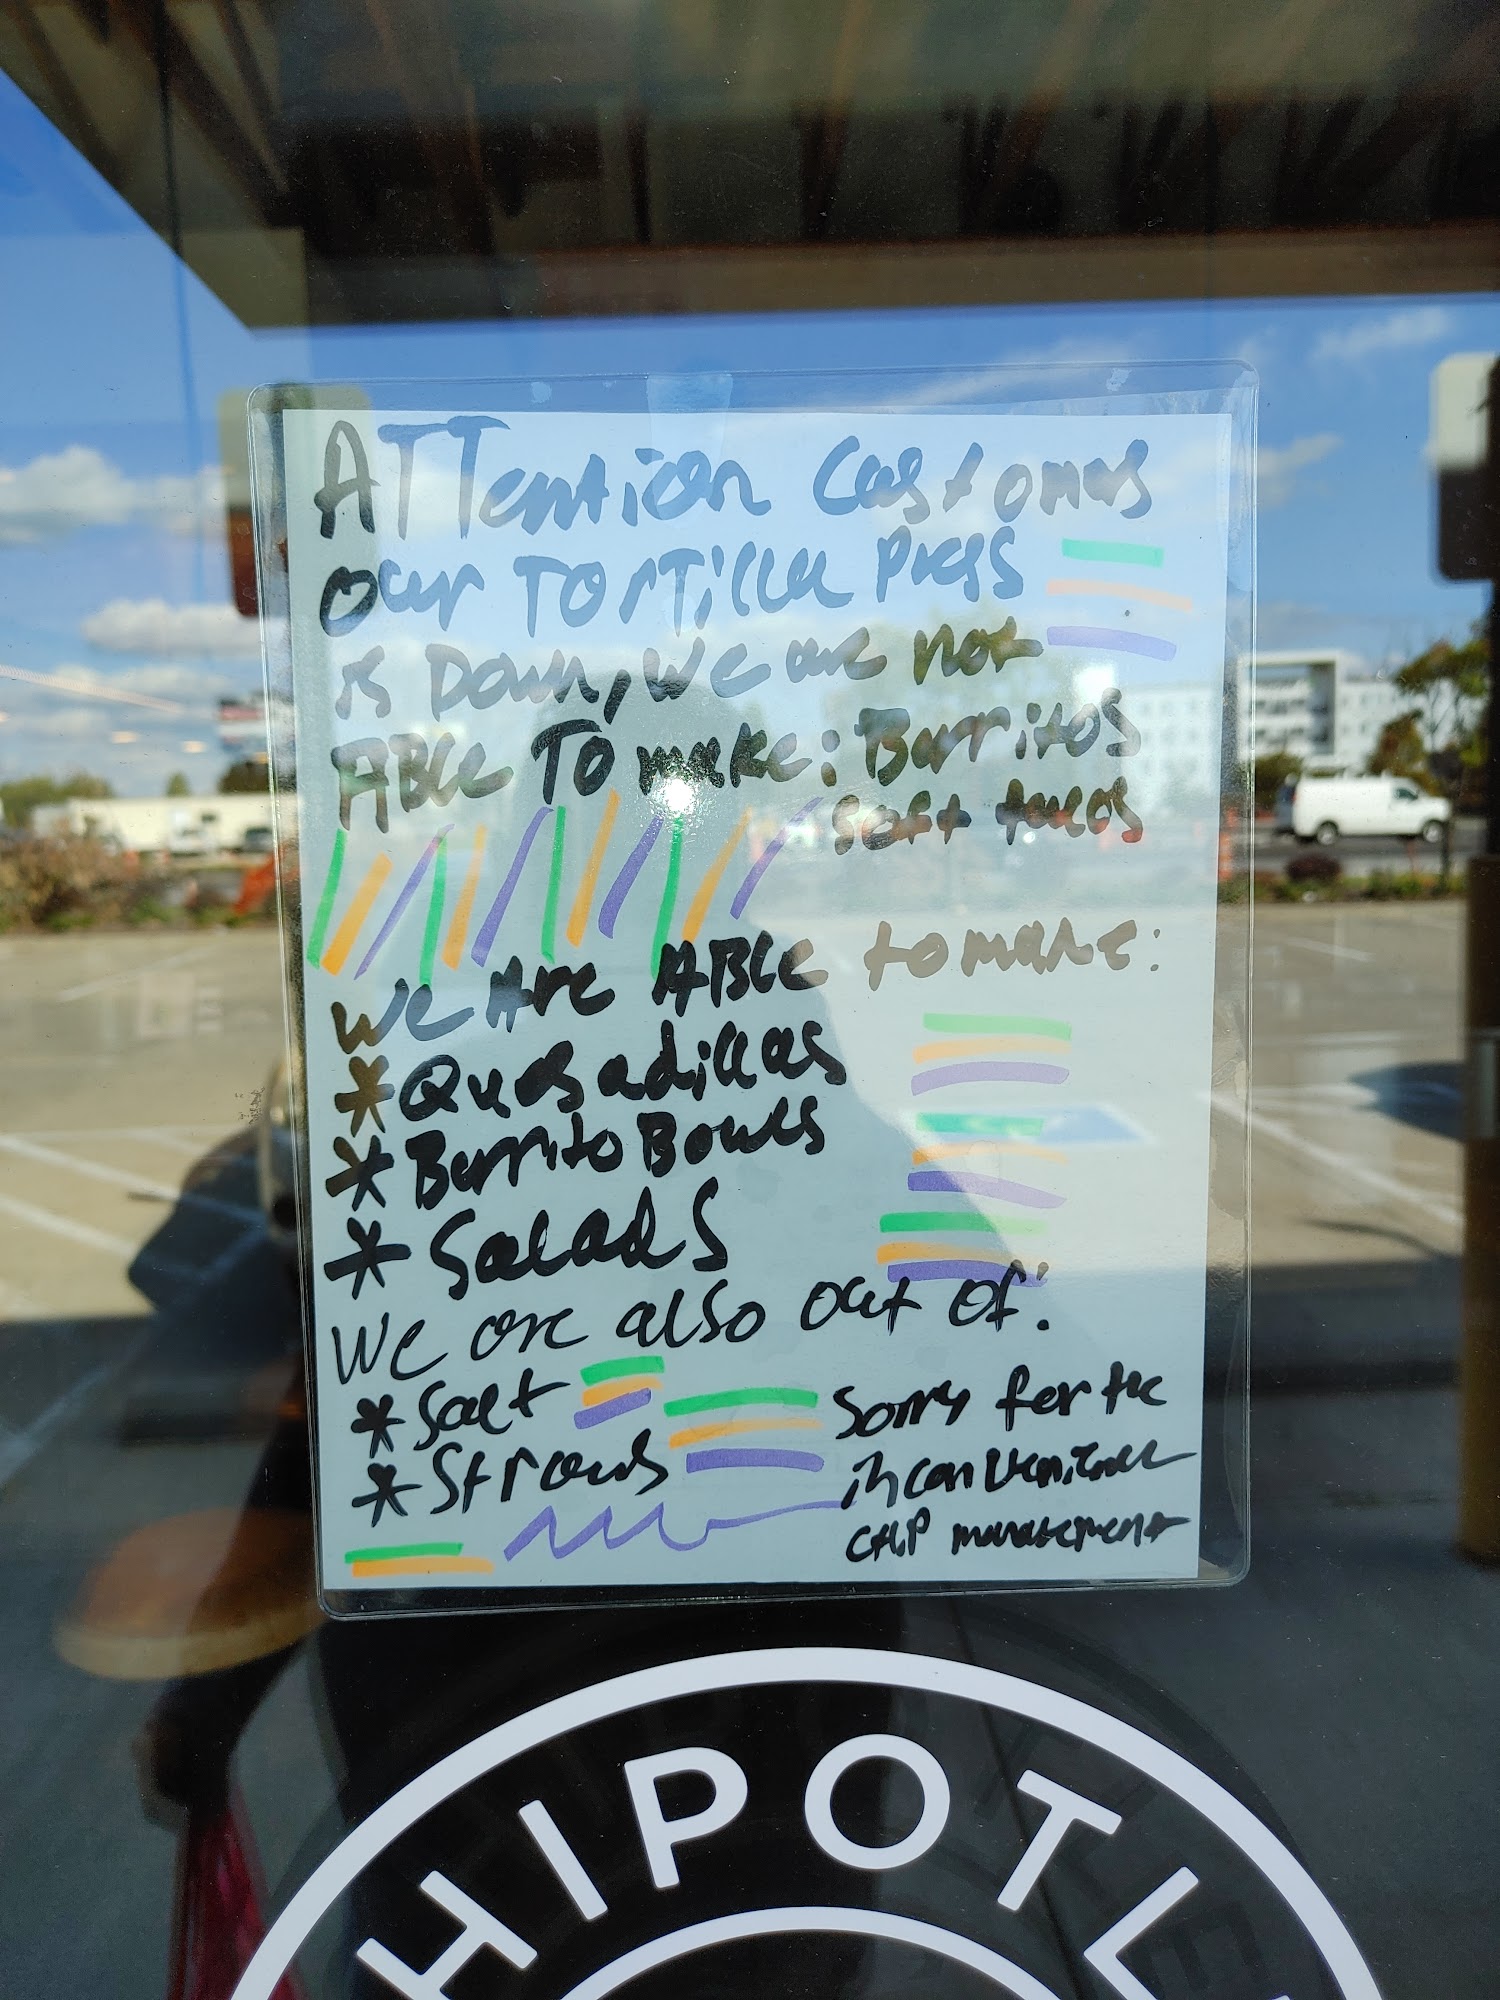 ATTention Customers
our TorTilla Press
is Down, we are not
ABLe To make: Burritos
soft tacos
We Are ABLe to make:
* Quesadillas
* Burrito Bowls
* Salads
We are also out of:
* Salt
* Straws
Sorry for the
inconvenience
CHP management
CHIPOTL